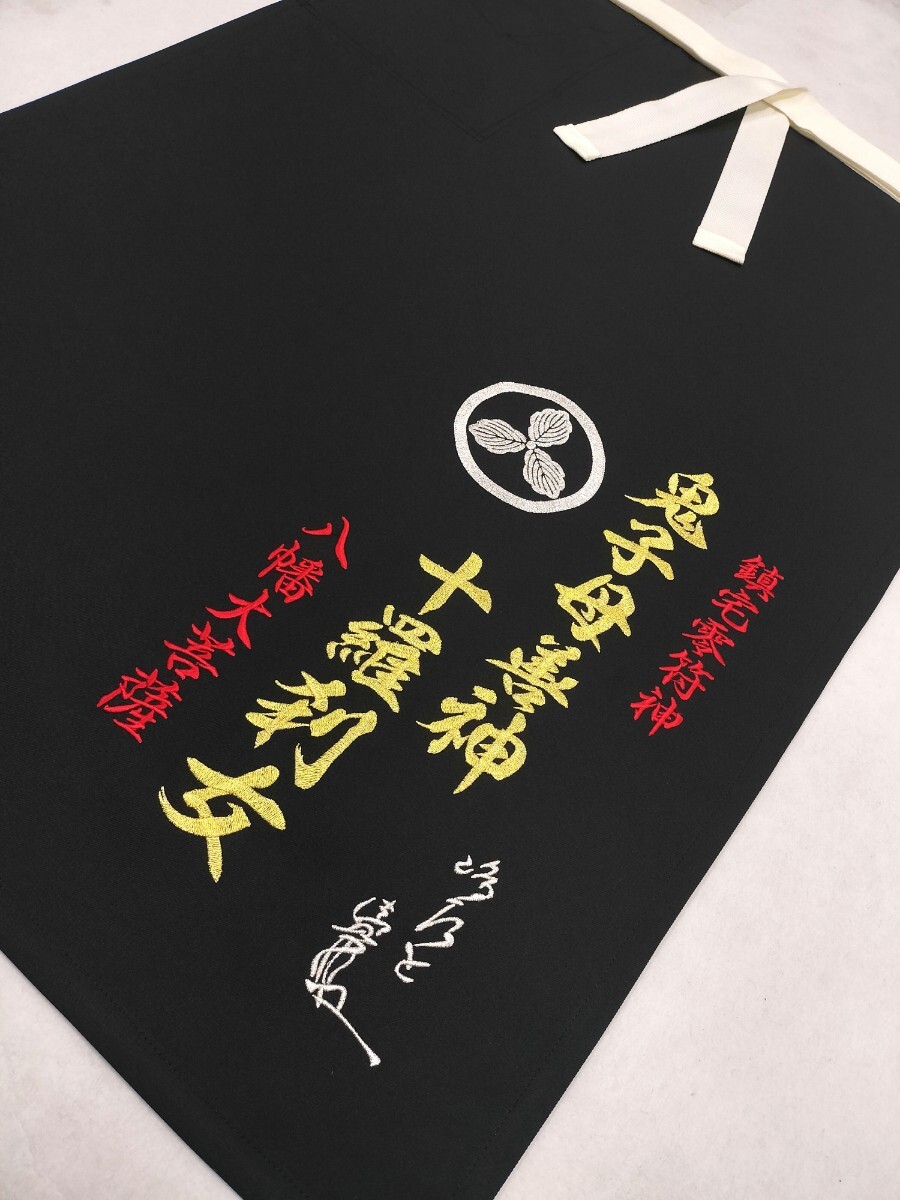 鎮宅霊符神
鬼子母善神
十羅刹女
八幡大菩薩